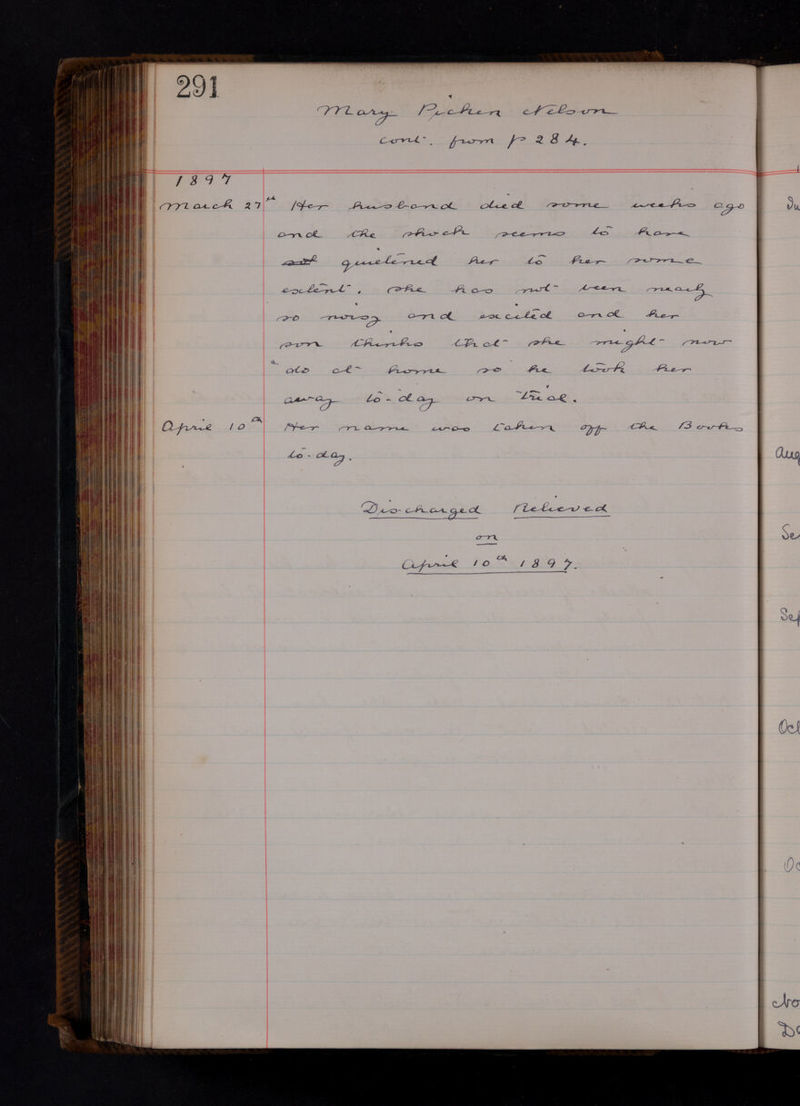 291
Mary Picken Nelson
cont. from p 284.
1897
March 27th Her husband died some weeks ago
and the shock seems to have
quietened her to her some
extent, she has not been nearly
so noisy and excited and her
son thinks that she might now
do at home so he took her
away to-day on trial.
April 10th Her name was taken off the Books
to-day.
Discharged Relieved
on
April 10th 1897.
Aug
Se
Sep
Oct
Oc
No
De